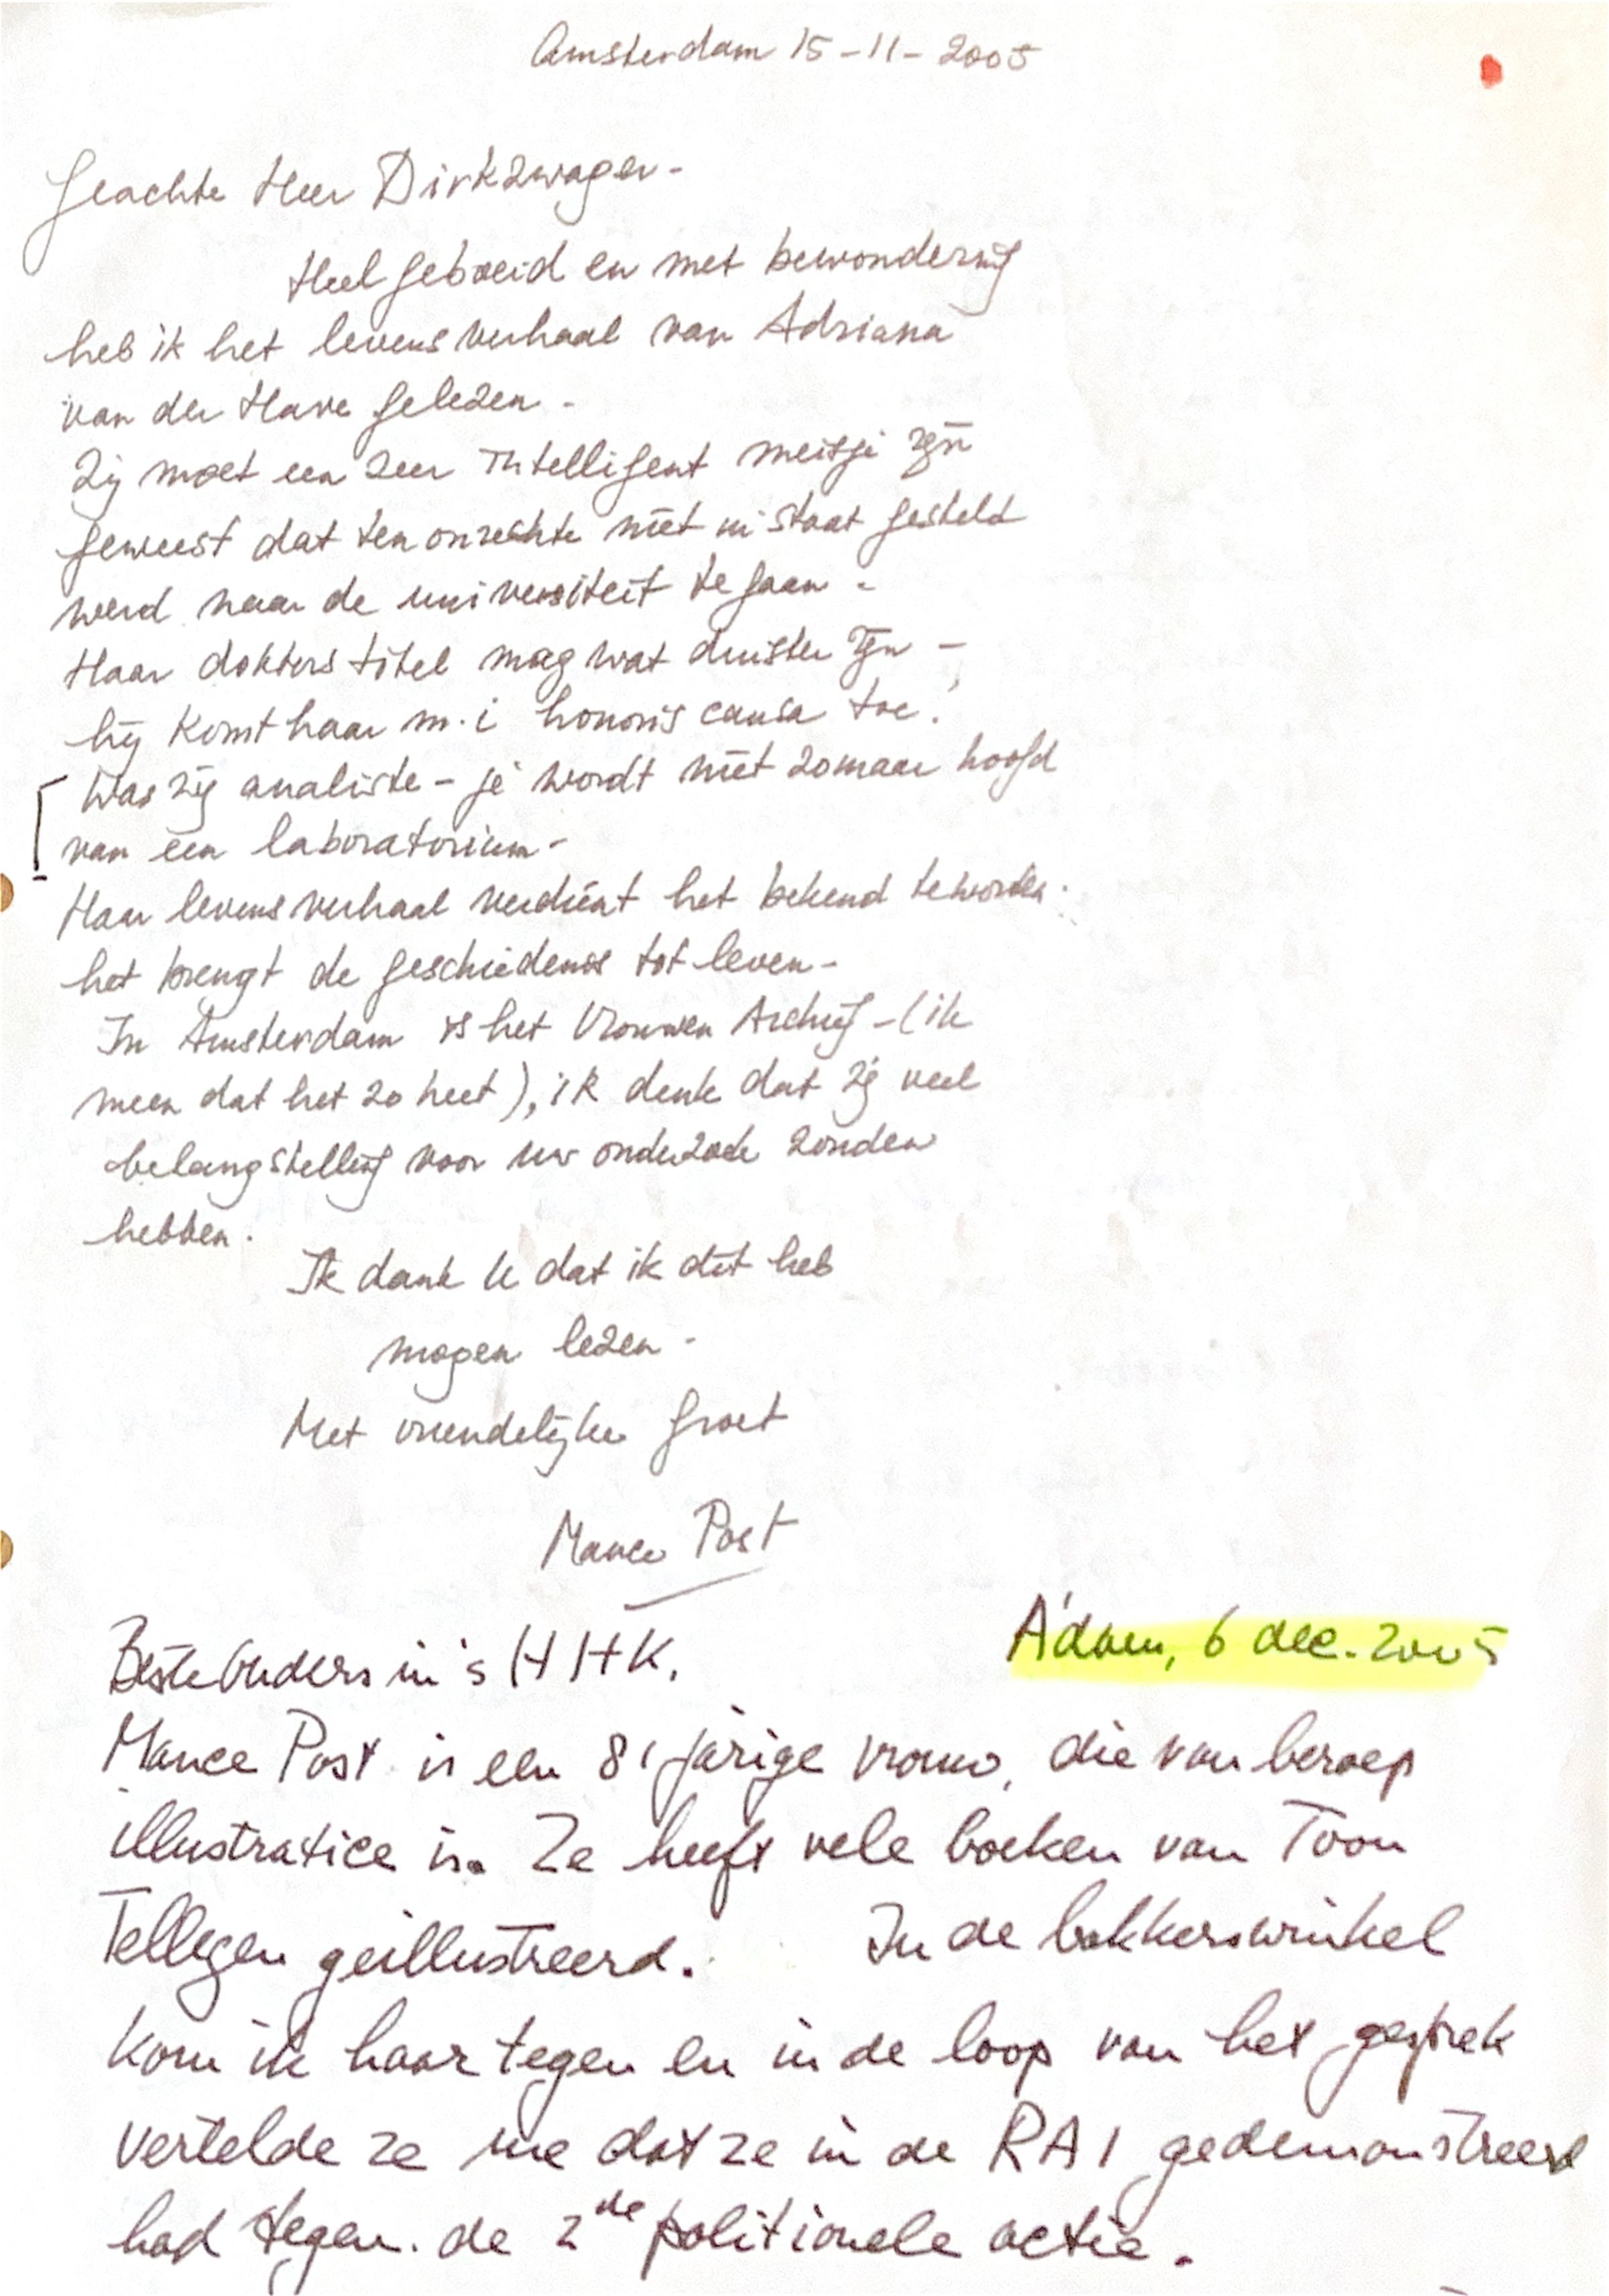 Amsterdam 15-11-2005
Geachte Heer Dirkzwager-
Heel geboeid en met bewondering
heb ik het levensverhaal van Adriana
van der Have gelezen-
Zij moet een zeer intelligent meisje zijn
geweest dat ten onrechte niet in staat gesteld
werd naar de universiteit te gaan-
Haar dokters titel mag wat duister zijn-
hij komt haar m.i honoris causa toe!
Was zij analiste - je wordt niet zomaar hoofd
van een laboratorium-
Haar levensverhaal verdient het bekend te worden.
het brengt de geschiedenis tot leven-
In Amsterdam is het Vrouwen Archief-(ik
meen dat het zo heet), ik denk dat zij veel
belangstelling voor uw onderzoek zouden
hebben.
Ik dank U dat ik dit heb
mogen lezen-
Met vriendelijke groet
Mance Post
A'dam, 6 dec. 2005
Beste Ouders in 's HHK.
Mance Post is een 81 jarige vrouw, die van beroep
illustratice is. Ze heeft vele boeken van Toon
Tellegen geillustreerd. In de bakkerswinkel
kom ik haar tegen en in de loop van het gesprek
vertelde ze me dat ze in de RAI gedemonstreerd
had tegen. de 2de politionele actie.